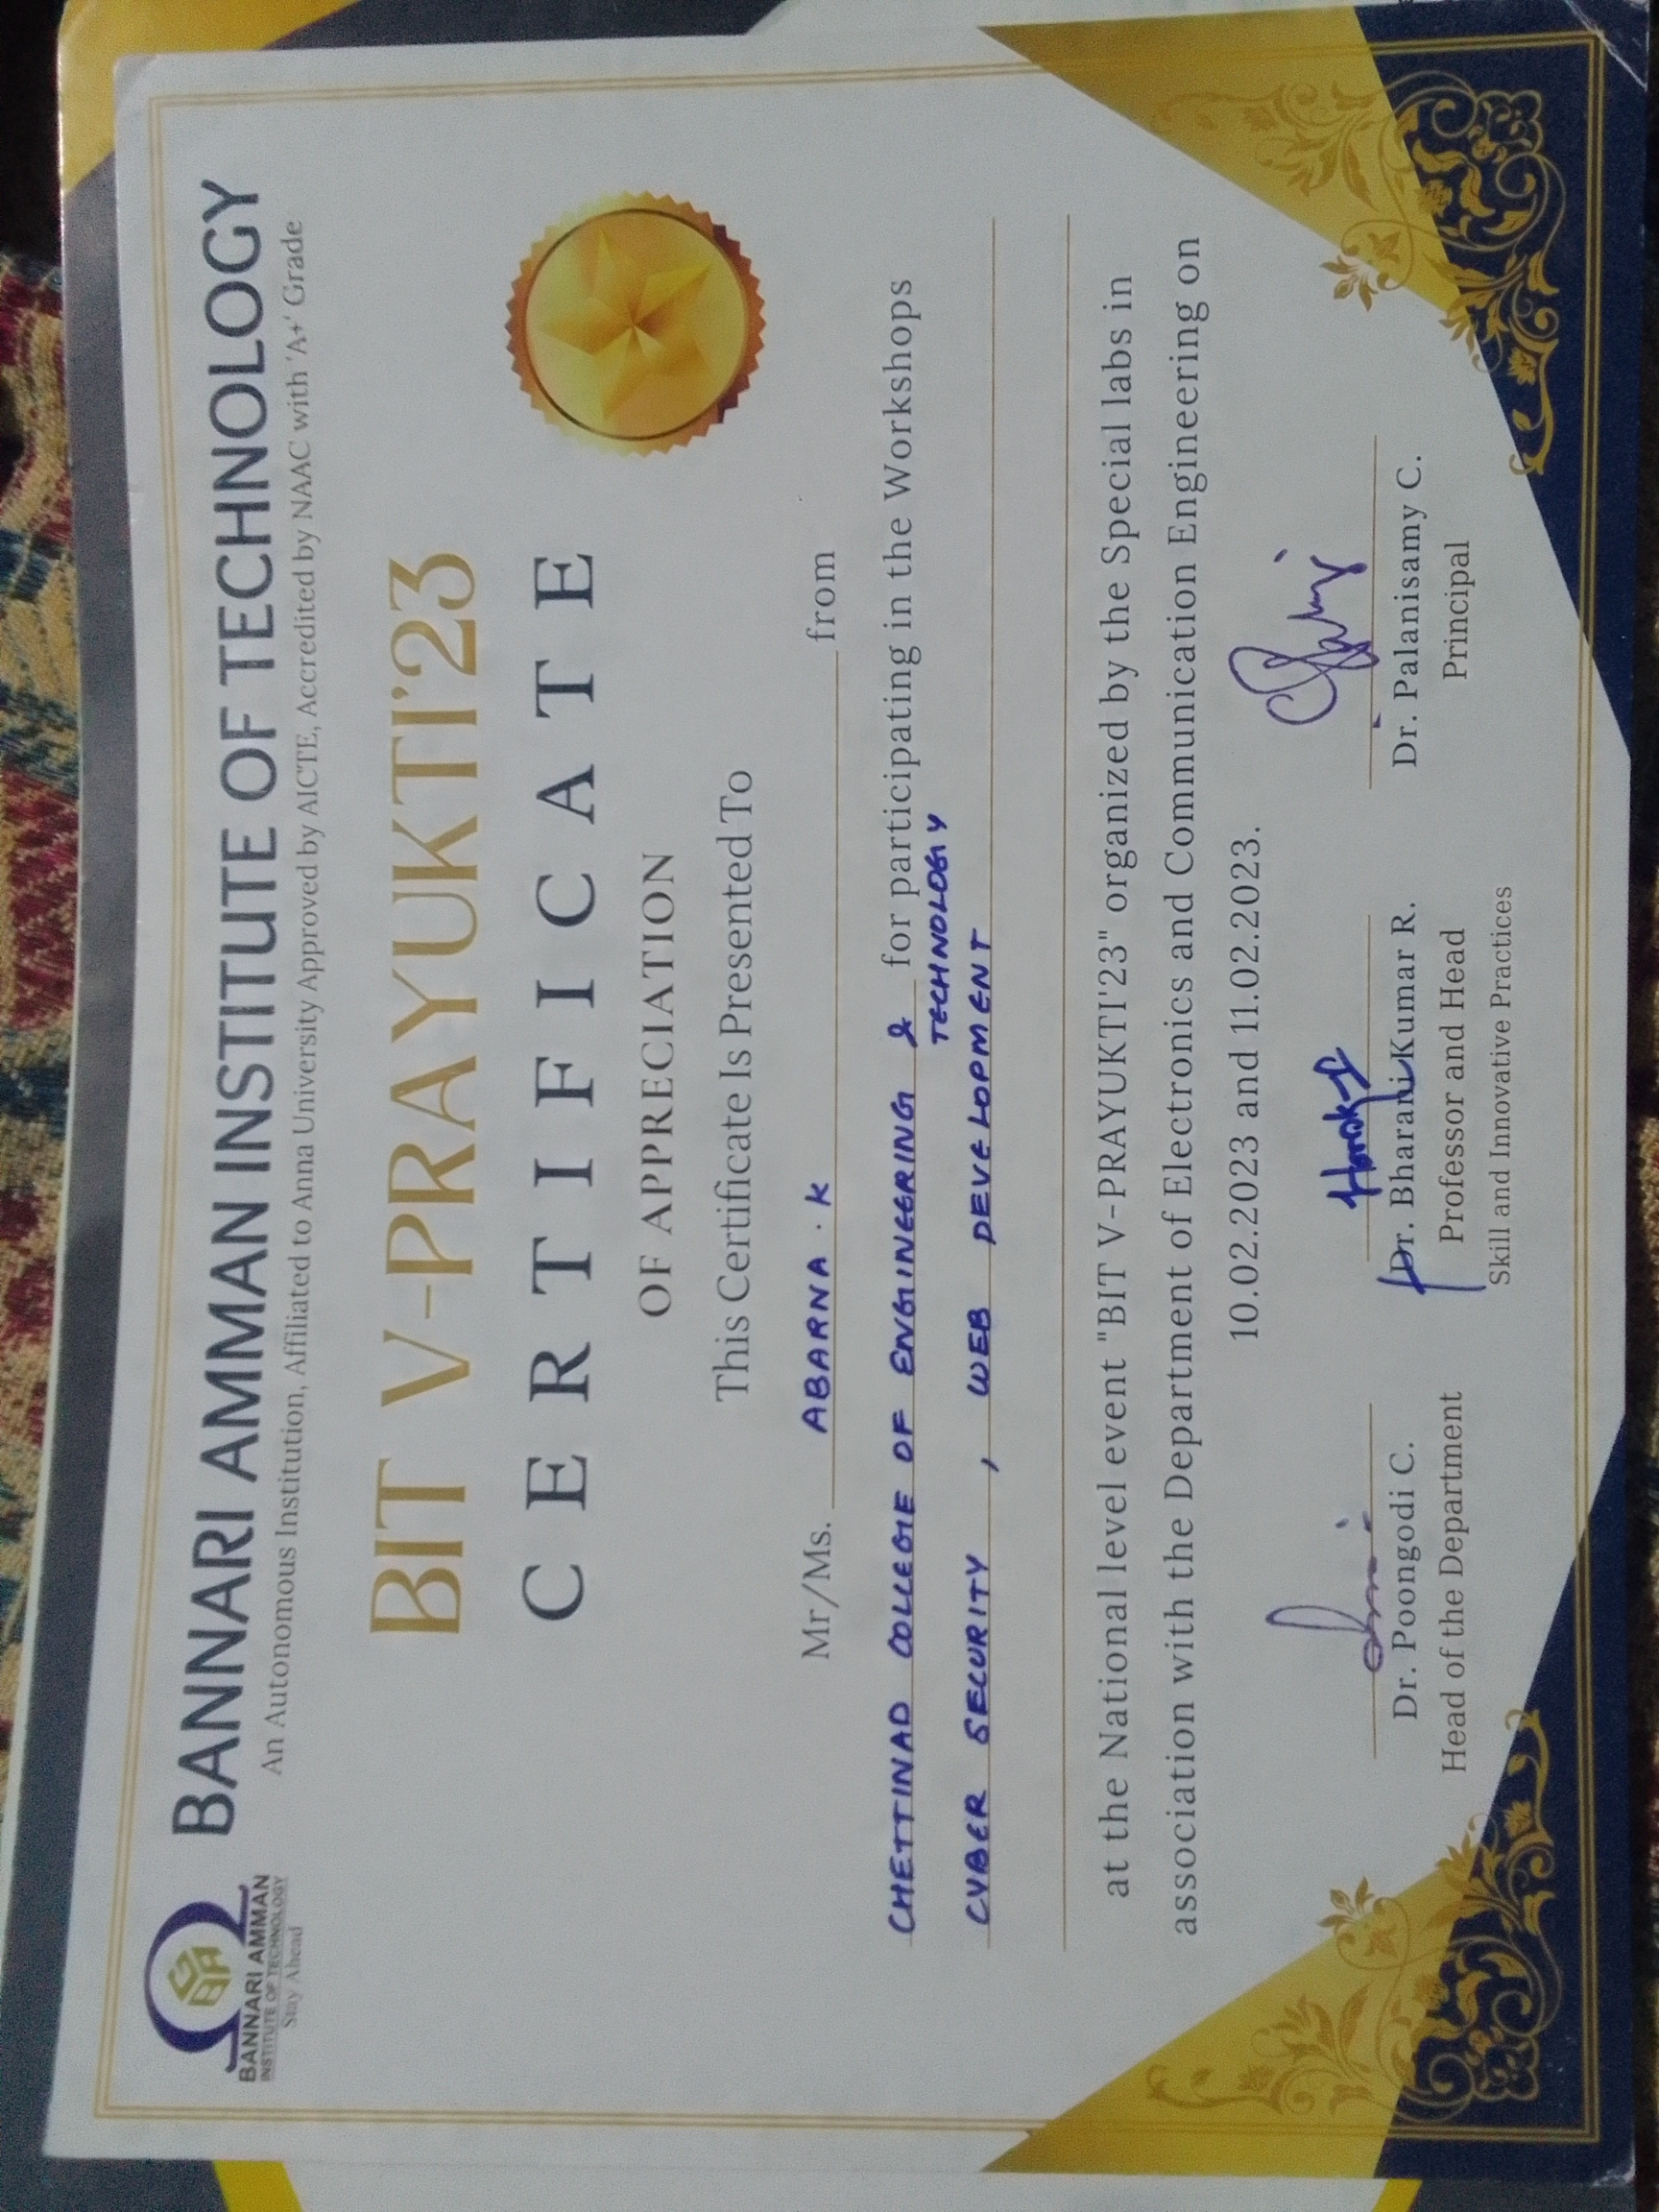 BANNARI AMMAN
INSTITUTE OF TECHNOLOGY
Stay Ahead
BANNARI AMMAN INSTITUTE OF TECHNOLOGY
An Autonomous Institution, Affiliated to Anna University Approved by AICTE, Accredited by NAAC with 'A+' Grade
BIT V-PRAYUKTI'23
CERTIFICATE
OF APPRECIATION
This Certificate Is Presented To
Mr/Ms. ABARNA . K from
CHETTINAD COLLEGE OF ENGINEERING & for participating in the Workshops
TECHNOLOGY
CYBER SECURITY , WEB DEVELOPMENT
at the National level event "BIT V-PRAYUKTI'23" organized by the Special labs in
association with the Department of Electronics and Communication Engineering on
10.02.2023 and 11.02.2023.
Dr. Poongodi C. Dr. Bharani Kumar R. Dr. Palanisamy C.
Head of the Department Professor and Head Principal
Skill and Innovative Practices